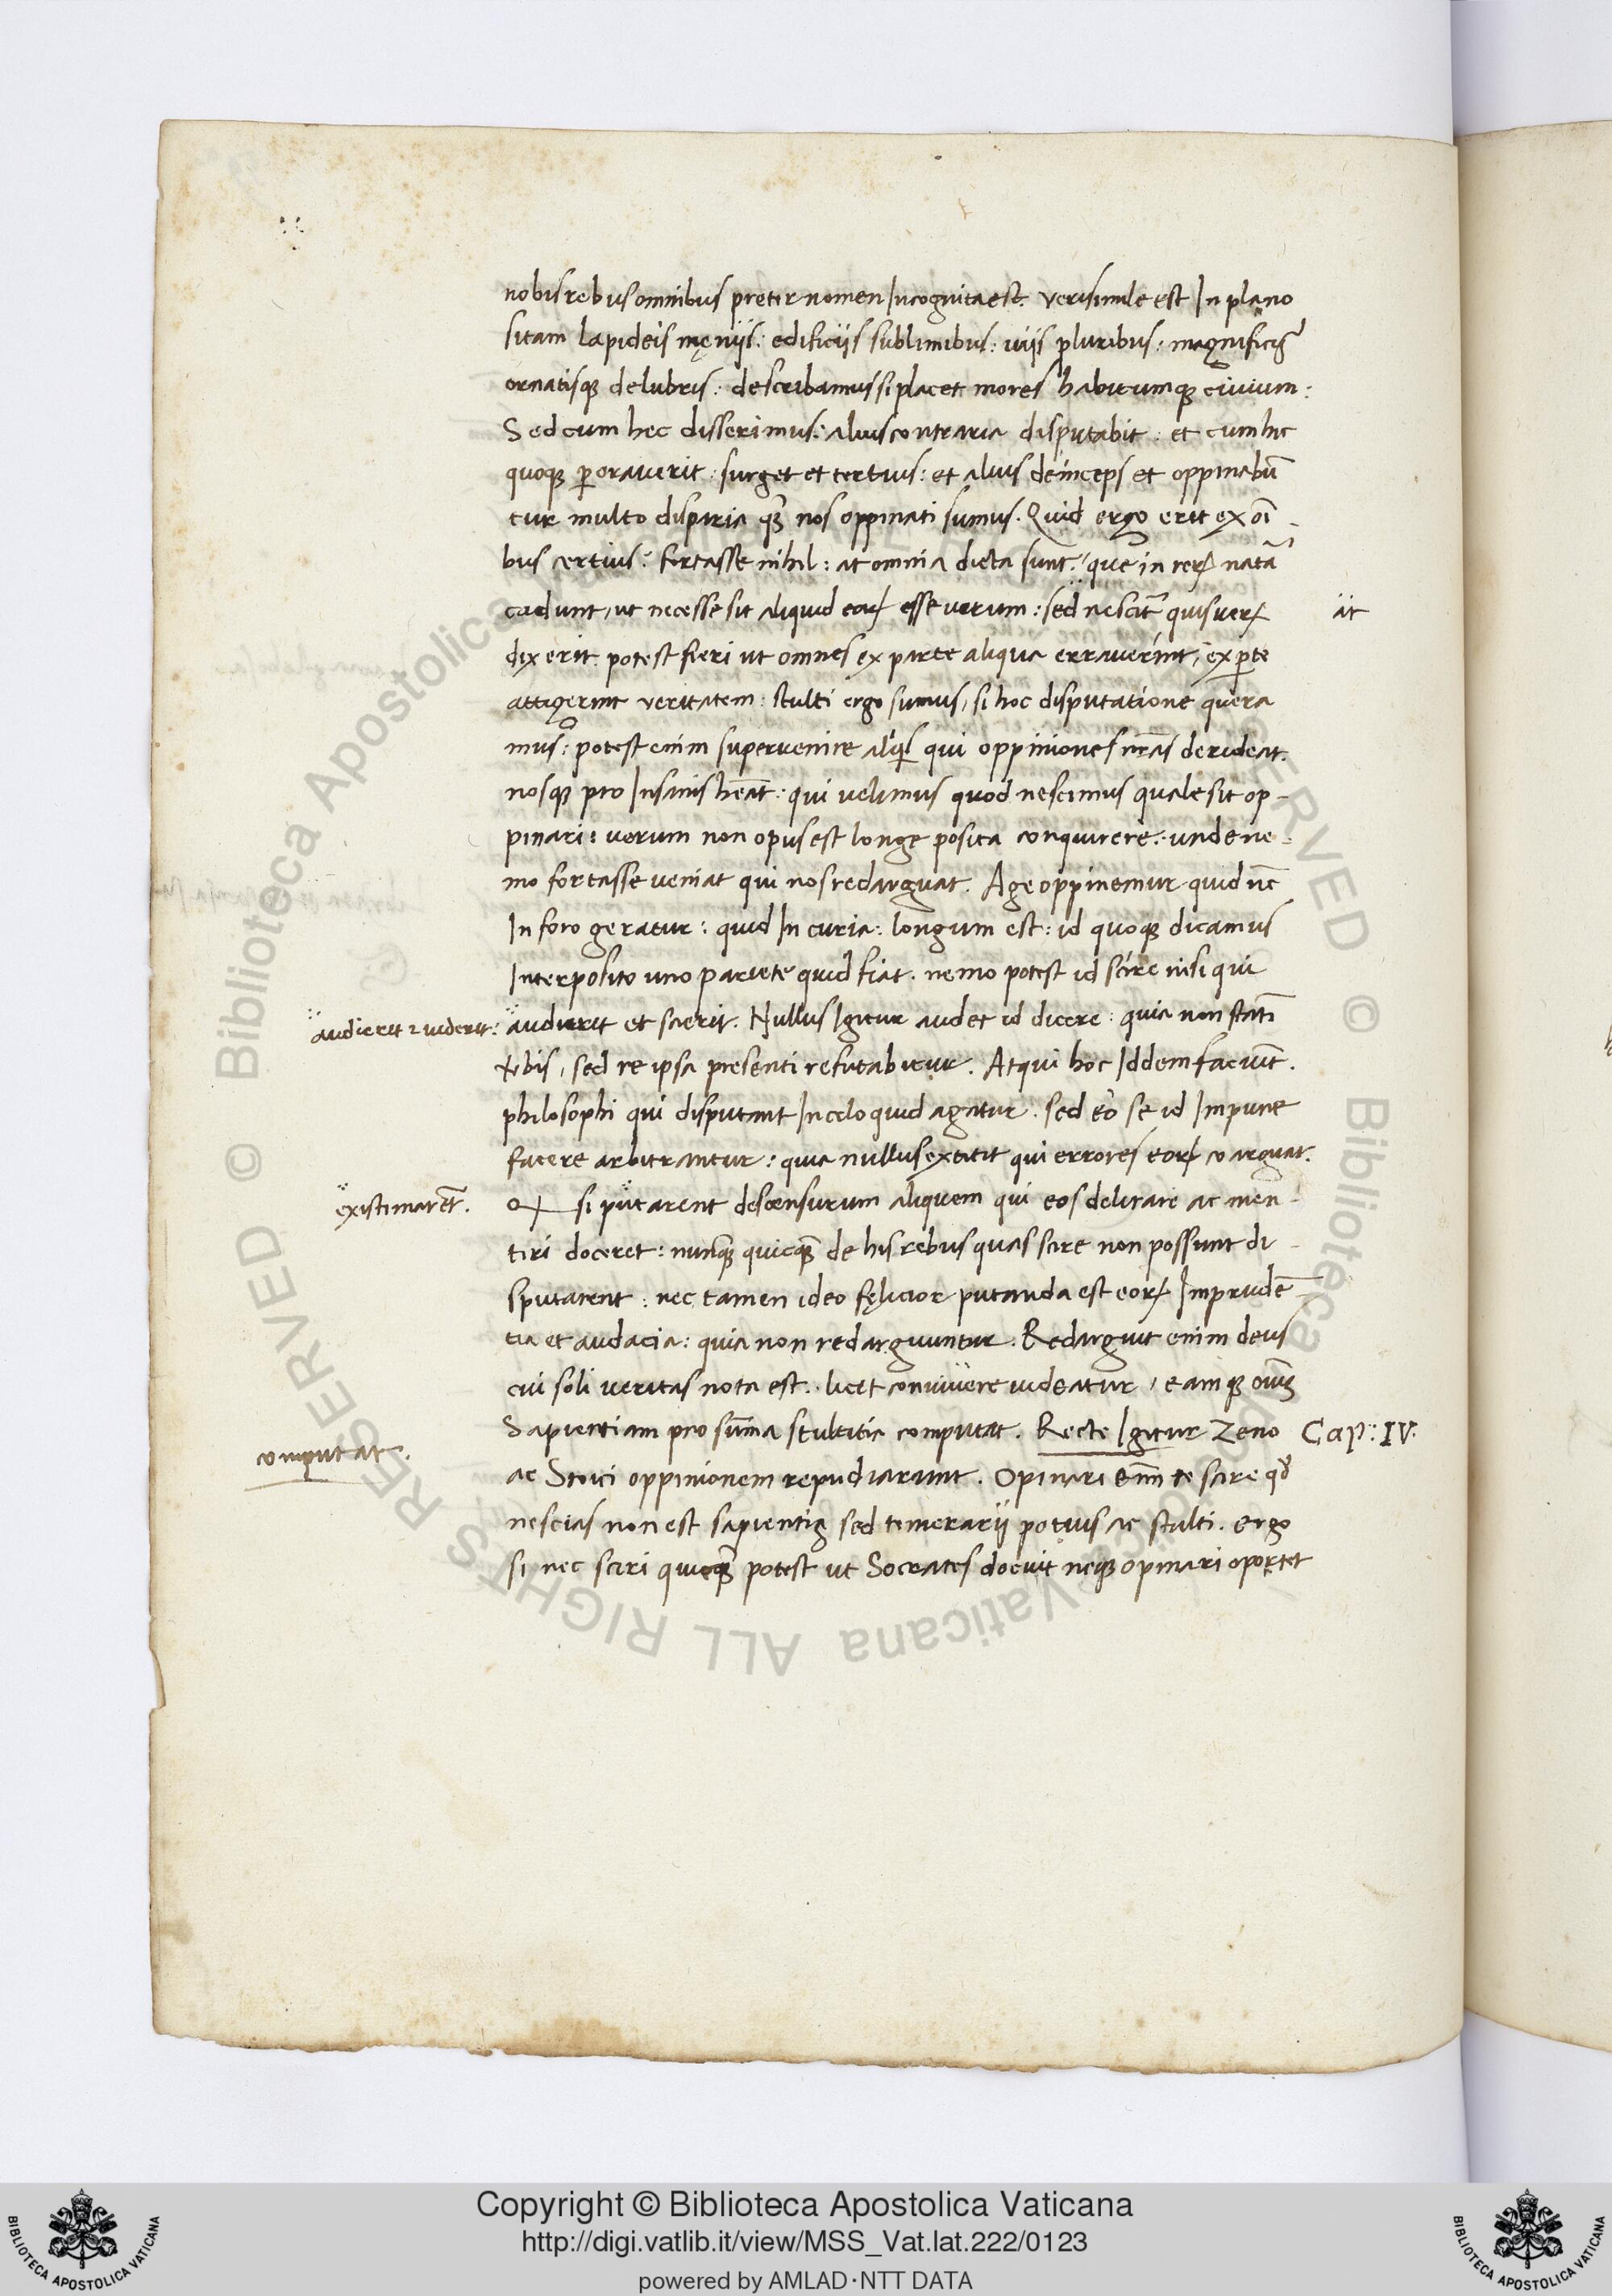 nobis rebus omnibus preter nomen Incognita est. verisimile est In plano
sitam lapideis męniis: edificiis sublimibus: viis pluribus: magnificis
ornatisq; delubris: describamus si placet mores habitumq; civium:
Sed cum hec disserimus: alius contraria disputabit: et cum hic
quoq; ꝑoraverit: surget et tertius: et alius deinceps et oppinabū
tur multo disparia q̄ nos oppinati sumus. Quid ergo erit ex oī
bus certius? fortasse nihil: at omnia dicta sunt: que in reꝝ natā
cadunt, ut necesse sit aliquid eoꝝ esse verum: sed nescit̄ quis veꝝ
dixerit. potest fieri ut omnes ex parte aliqua erraverint, ex ꝑte
attigerint veritatem: stulti ergo sumus, si hoc disputatione quera
mus: potest enim supervenire aliq̓s qui oppiniones nr̄as derideat.
nosq; pro Insanis heāt: qui velimus quod nescimus quale sit op-
pinari: verum non opus est longe posita conquirere: unde ne-
mo fortasse veniat qui nos redarguat. Age oppinemur quid nc̄
In foro geratur: quid In curia: longum est: id quoq; dicamus
Interposito uno pariete quid fiat. nemo potest id scire nisi qui
audierit et scierit. Nullus Igitur audet id dicere: quia non statī
v̄bis, sed re ipsa presenti refutabitur. Atqui hoc Iddem faciūt.
philosophi qui disputant In celo quid agatur. sed eo se id Impune
facere arbitrantur: quia nullus extitit qui errores eoꝝ coarguat.
Q si putarent descensurum aliquem qui eos delirare ac men-
tiri doceret: nunq̄ quicq̄ de his rebus quas scire non possunt di-
sputarent: nec tamen ideo fęlicior putanda est eoꝝ Imprudē-
tia et audacia: quia non redarguuntur. Redarguit enim deus
cui soli veritas nota est. licet connivere videatur, eamq; oīuz
Sapientiam pro sūma stultitia computat. Recte Igitur Zeno
ac Stoici oppinionem repudiarunt. Opinari enī te scire qd̓
nescias non est sapientis sed temerarii potius ac stulti. ergo
si nec sciri quicq̄ potest ut Socrates docuit neq; opinari oportet
at
audierit ⁊ viderit:
existimarēt.
computat.
Cap: IV:
Copyright © Biblioteca Apostolica Vaticana
http://digi.vatlib.it/view/MSS_Vat.lat.222/0123
powered by AMLAD·NTT DATA
BIBLIOTECA APOSTOLICA VATICANA
BIBLIOTECA APOSTOLICA VATICANA
© Biblioteca Apostolica Vaticana ALL RIGHTS RESERVED